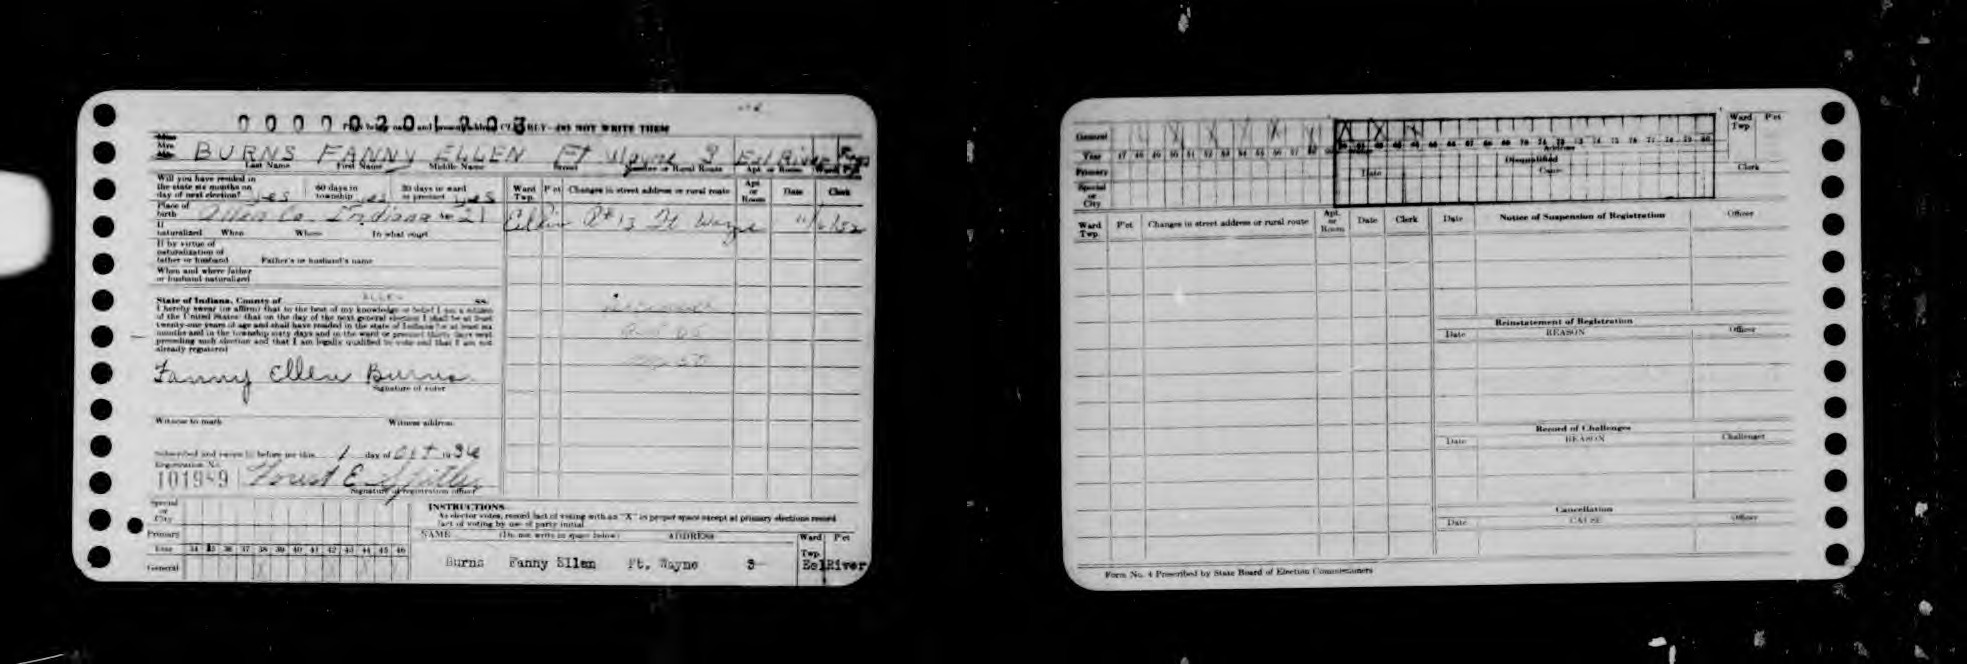 00000201803
Print below name and present address CLEARLY—DO NOT WRITE THEM
Miss
Mrs.
BURNS FANNY ELLEN Ft Wayne 3 Eel River
Last Name First Name Middle Name Street Number or Rural Route Apt. or Room Ward P'ct
Will you have resided in the state six months on day of next election? yes 60 days in township yes 30 days in ward or precinct yes
Place of birth Allen Co. Indiana
If naturalized When Where In what court
If by virtue of naturalization of father or husband Father's or husband's name
When and where father or husband naturalized
State of Indiana, County of ALLEN ss.
I hereby swear (or affirm) that to the best of my knowledge or belief I am a citizen
of the United States: that on the day of the next general election I shall be at least
twenty-one years of age and shall have resided in the state of Indiana for at least six
months and in the township sixty days and in the ward or precinct thirty days next
preceding such election and that I am legally qualified to vote and that I am not
already registered
Fanny Ellen Burns
Signature of voter
Witness to mark Witness address
Subscribed and sworn to before me this 1 day of Oct 1936
Registration No.
101989 Forest E. Spitler
Signature of registration officer
Ward Twp. P'ct Changes in street address or rural route Apt. or Room Date Clerk
R# 13 Ft Wayne 11/6/52
Special or City
Primary
Year 34 35 36 37 38 39 40 41 42 43 44 45 46
General
INSTRUCTIONS
As elector votes, record fact of voting with an "X" in proper space except at primary elections record
fact of voting by use of party initial
NAME (Do not write in space below) ADDRESS Ward Twp. P'ct
Burns Fanny Ellen Ft. Wayne 3 Eel River
General X X X X X X X
Year 47 48 49 50 51 52 53 54 55 56 57 58
Primary
Special or City
Address
Disqualified
Date Cause
Ward Twp. P'ct
Clerk
Ward Twp. P'ct Changes in street address or rural route Apt. or Room Date Clerk
Date Notice of Suspension of Registration Officer
Reinstatement of Registration
Date REASON Officer
Record of Challenges
Date REASON Challenger
Cancellation
Date CAUSE Officer
Form No. 4 Prescribed by State Board of Election Commissioners